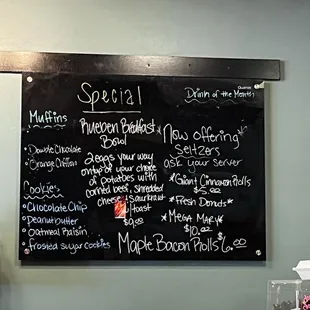 Special
Drink of the Month
Muffins
• Double Chocolate
• Orange Chiffon
Cookies
• Chocolate Chip
• Peanutbutter
• Oatmeal Raisin
• Frosted Sugar Cookies
Rueben Breakfast
Bowl
2 eggs your way
ontop of your choice
of potatoes with
corned beef, Shredded
cheese, Sauerkraut
Toast
$9.00
*Now offering*
Seltzers
ask your server
*Giant Cinnamon Rolls
$5.00
*Fresh Donuts*
*Mega Mary*
$10.00
Maple Bacon Rolls $6.00